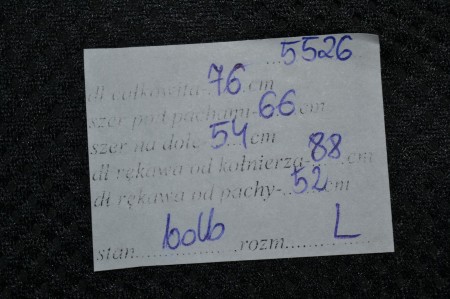 ...5526
dł całkowita-76cm
szer pod pachami-66cm
szer na dole-54...cm
dł rękawa od kołnierza-88...cm
dł rękawa od pachy-...52cm
stan...bdb...rozm...L